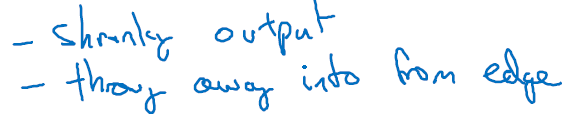 - shrinky output
- throw away info from edge